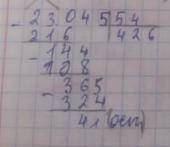 - 23045 | 54
216 | 426
- 144
108
- 365
324
41 (ост)